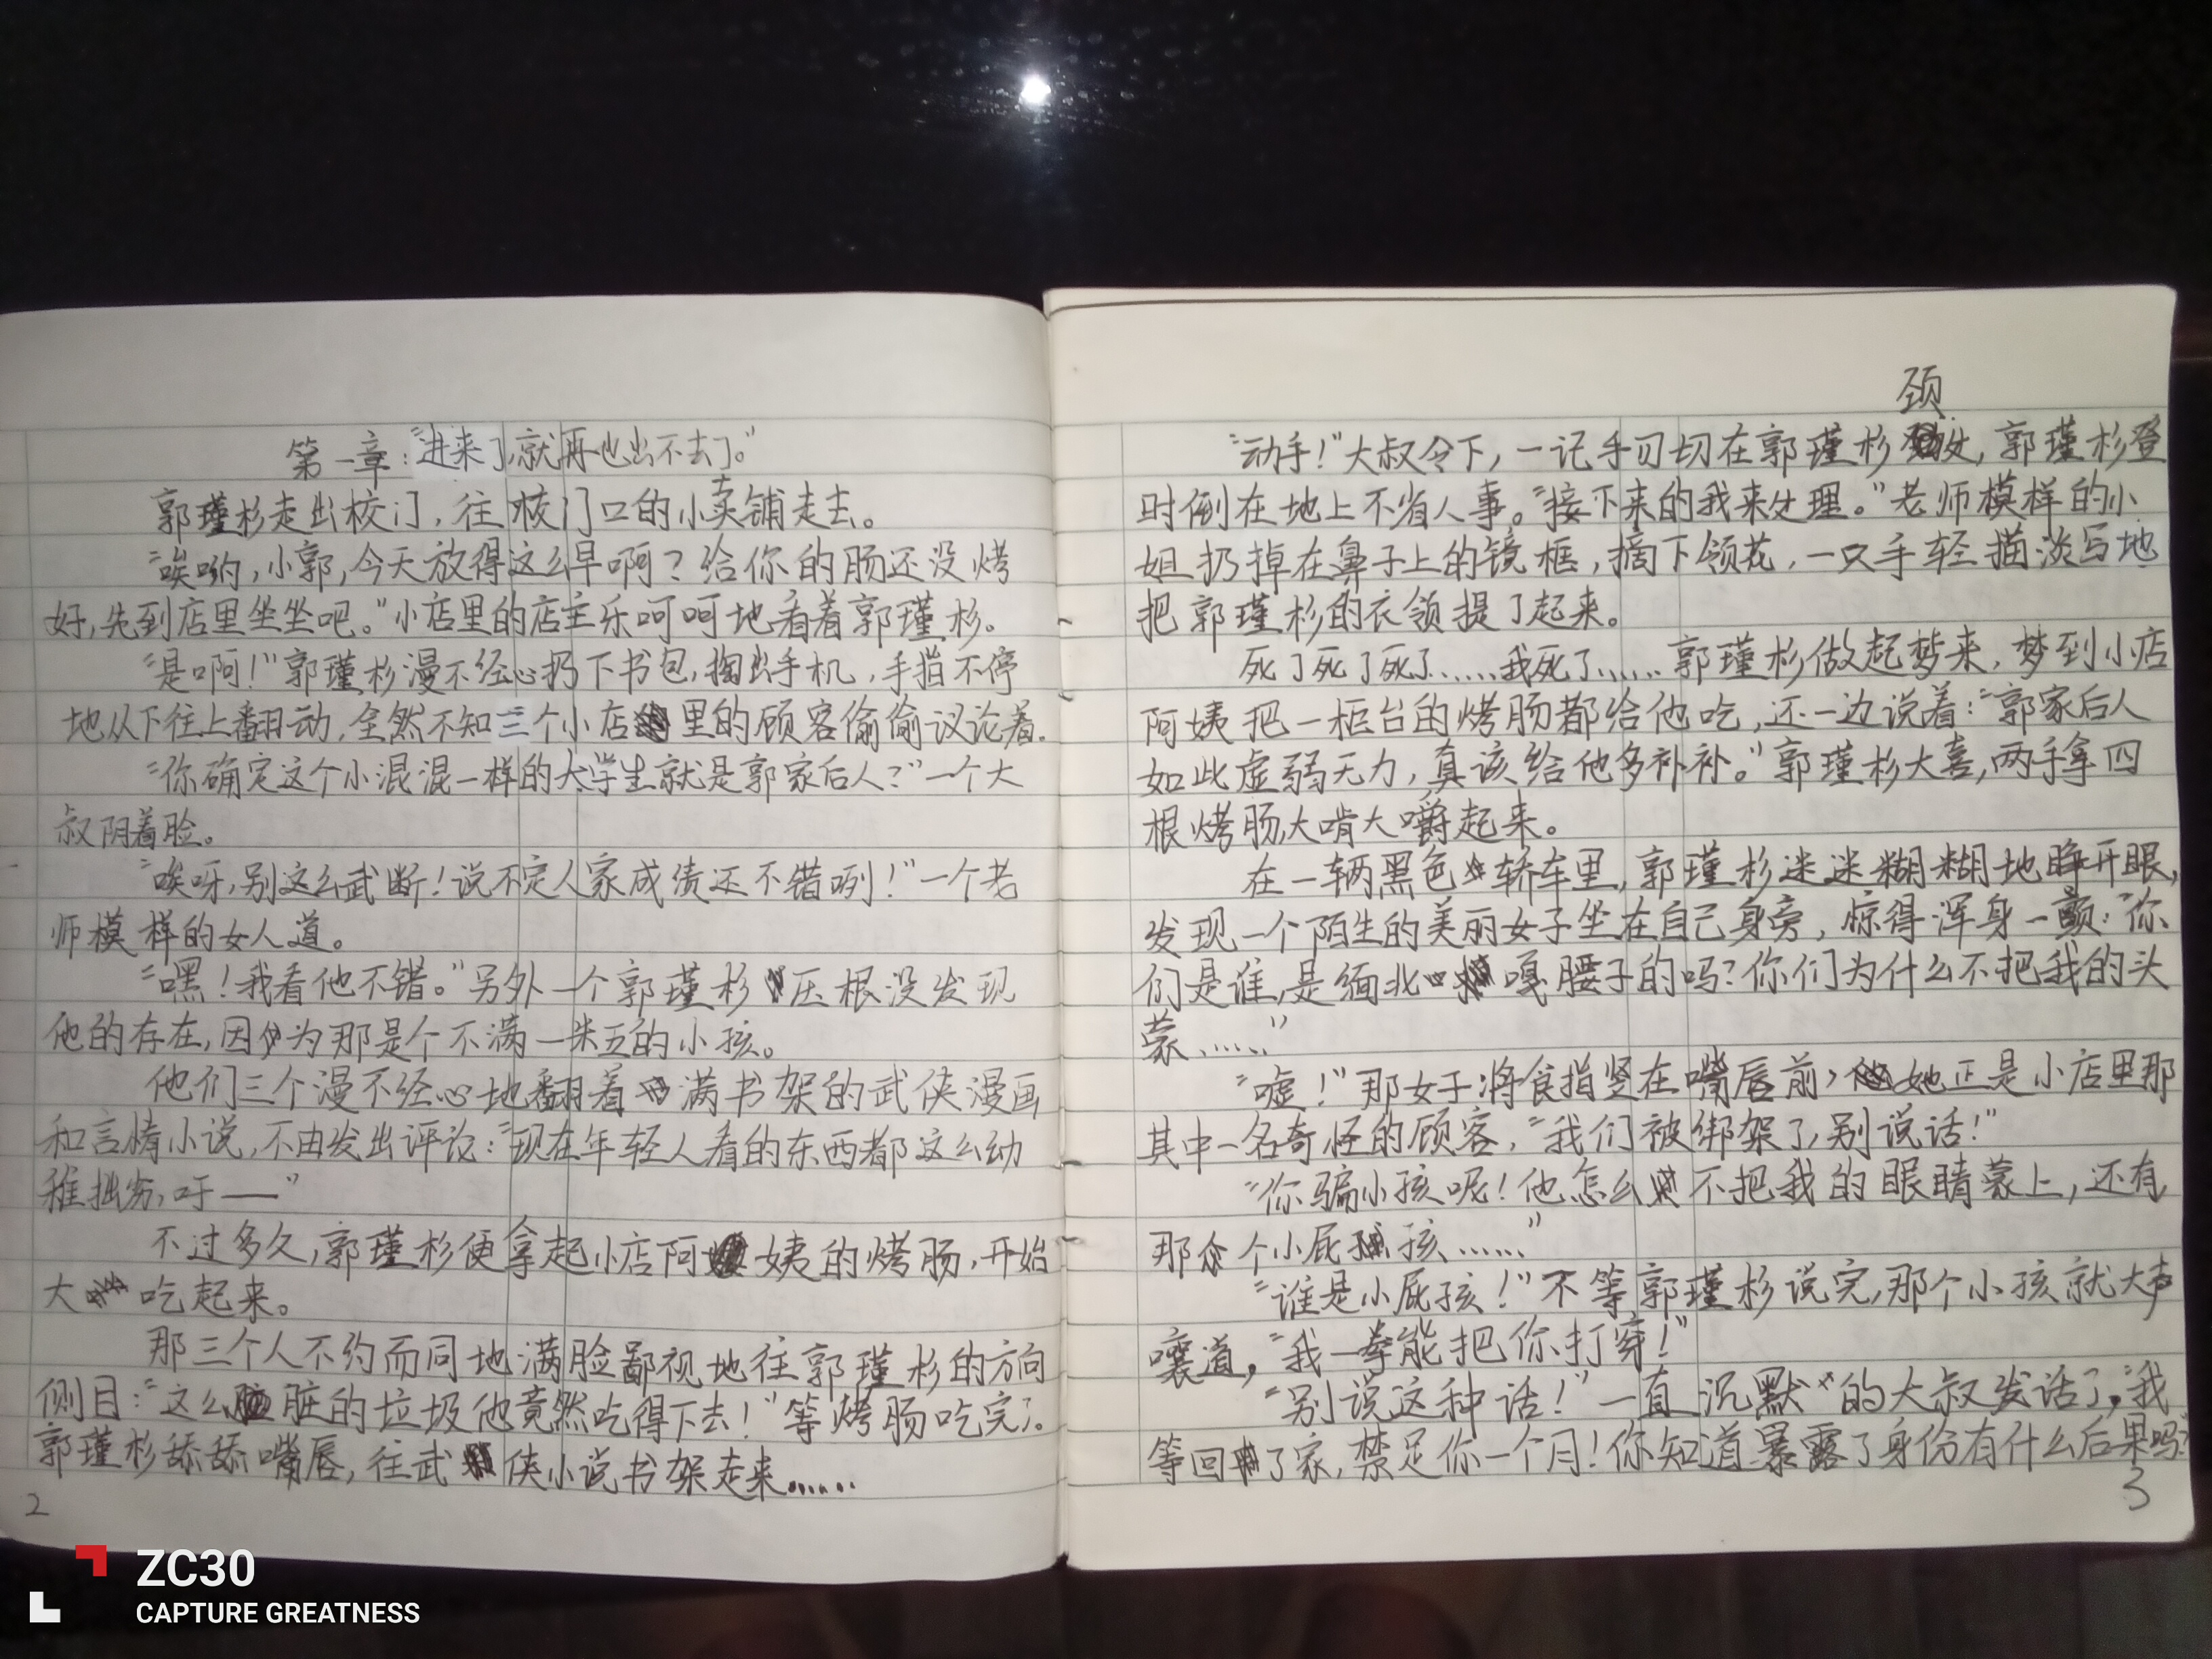 第一章：“进来了，就再也出不去了。”
郭瑾杉走出校门，往校门口的小卖铺走去。
“唉哟，小郭，今天放得这么早啊？给你的肠还没烤
好，先到店里坐坐吧。”小店里的店主乐呵呵地看着郭瑾杉。
“是啊！”郭瑾杉漫不经心扔下书包，掏出手机，手指不停
地从下往上翻动，全然不知三个小店里的顾客偷偷议论着.
“你确定这个小混混一样的大学生就是郭家后人？”一个大
叔阴着脸。
“唉呀，别这么武断！说不定人家成绩还不错咧！”一个老
师模样的女人道。
“嘿！我看他不错。”另外一个郭瑾杉压根没发现
他的存在，因为那是个不满一米五的小孩。
他们三个漫不经心地翻着满书架的武侠漫画
和言情小说，不由发出评论：“现在年轻人看的东西都这么幼
稚拙劣，吁——”
不过多久，郭瑾杉便拿起小店阿姨的烤肠，开始
大吃起来。
那三个人不约而同地满脸鄙视地往郭瑾杉的方向
侧目：“这么脏的垃圾他竟然吃得下去！”等烤肠吃完了。
郭瑾杉舔舔嘴唇，往武侠小说书架走来……
2
颈
“动手！”大叔令下，一记手刃切在郭瑾杉，郭瑾杉登
时倒在地上不省人事。“接下来的我来处理。”老师模样的小
姐扔掉在鼻子上的镜框，摘下领花，一只手轻描淡写地
把郭瑾杉的衣领提了起来。
死了死了死了……我死了……郭瑾杉做起梦来，梦到小店
阿姨把一柜台的烤肠都给他吃，还一边说着：“郭家后人
如此虚弱无力，真该给他多补补。”郭瑾杉大喜，两手拿四
根烤肠大啃大嚼起来。
在一辆黑色轿车里，郭瑾杉迷迷糊糊地睁开眼，
发现一个陌生的美丽女子坐在自己身旁，惊得浑身一颤：“你
们是谁，是缅北嘎腰子的吗？你们为什么不把我的头
蒙……”
“嘘！”那女子将食指竖在嘴唇前，她正是小店里那
其中一名奇怪的顾客，“我们被绑架了，别说话！”
“你骗小孩呢！他怎么不把我的眼睛蒙上，还有
那个小屁孩……”
“谁是小屁孩！”不等郭瑾杉说完，那个小孩就大声
嚷道，“我一拳能把你打穿！”
“别说这种话！”一直沉默的大叔发话了，“我
等回了家，禁足你一个月！你知道暴露了身份有什么后果吗？
3
ZC30
CAPTURE GREATNESS